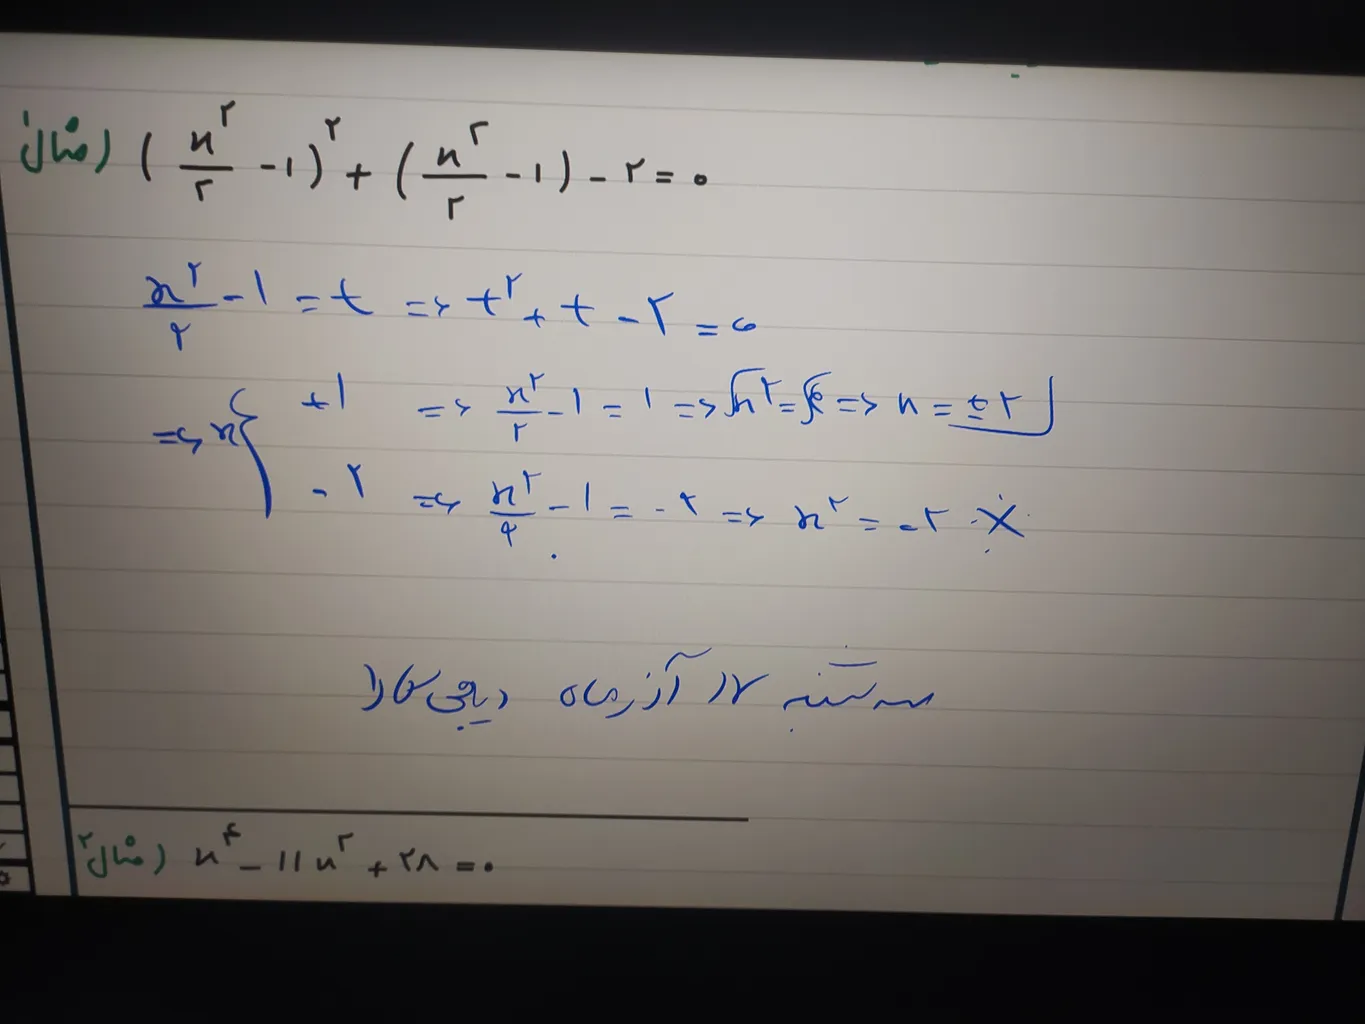 مثال۱) (x^۲/۲ -۱)^۲ + (x^۲/۲ -۱) - ۲ = ۰
x^۲/۲ - ۱ = t => t^۲ + t - ۲ = ۰
+۱ => x^۲/۲ - ۱ = ۱ => √x^۲ = √۴ => x = ±۲
=> x {
-۲ => x^۲/۲ - ۱ = -۲ => x^۲ = -۲ ✗
سه شنبه ۱۲ آزرماه
مثال۲) x^۴ - ۱۱x^۲ + ۲۸ = ۰